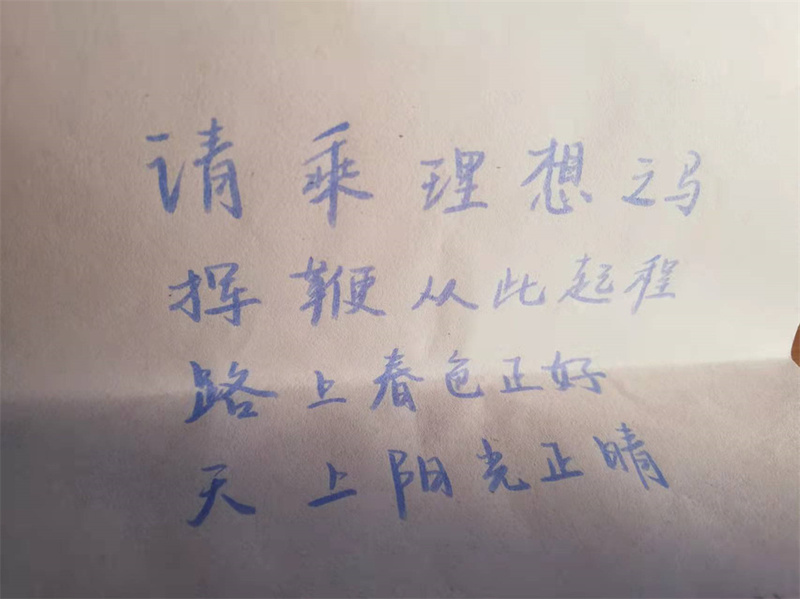 请乘理想之马
挥鞭从此起程
路上春色正好
天上阳光正晴